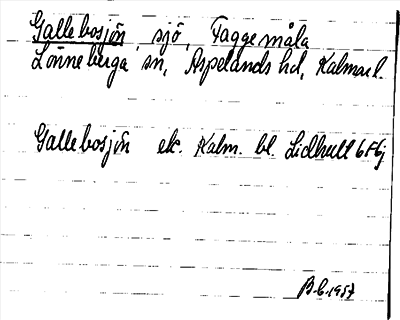 Gallebosjön, sjö, Taggemåla
Lönneberga sn, Aspelands hd, Kalmar l.
Gallebosjön ek. Kalm. bl. Lidhult 6F6j
B.E. 1957